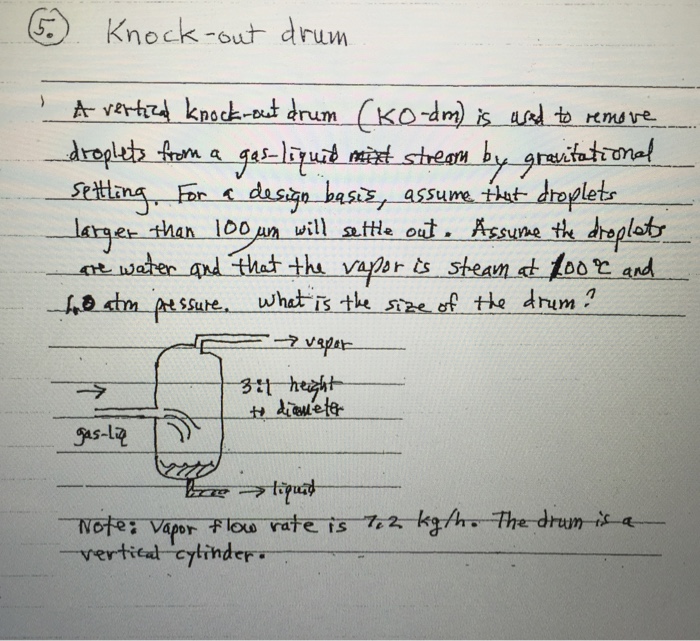 5. Knock-out drum
A vertical knock-out drum (KO-dm) is used to remove
droplets from a gas-liquid mixt stream by gravitational
settling. For a design basis, assume that droplets
larger than 100 µm will settle out. Assume the droplets
are water and that the vapor is steam at 100°C and
1.0 atm pressure. What is the size of the drum?
→ vapor
3:1 height
to diameter
gas-liq
→ liquid
Note: Vapor flow rate is 7.2 kg/h. The drum is a
vertical cylinder.